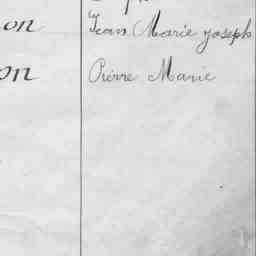 on Jean Marie Joseph
on Pierre Marie